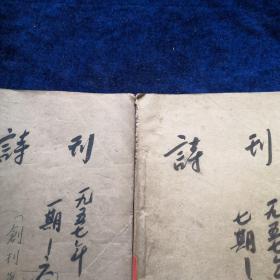 詩刊
一九五七年
一期—六
(創刊
詩刊
一九五七
七期—